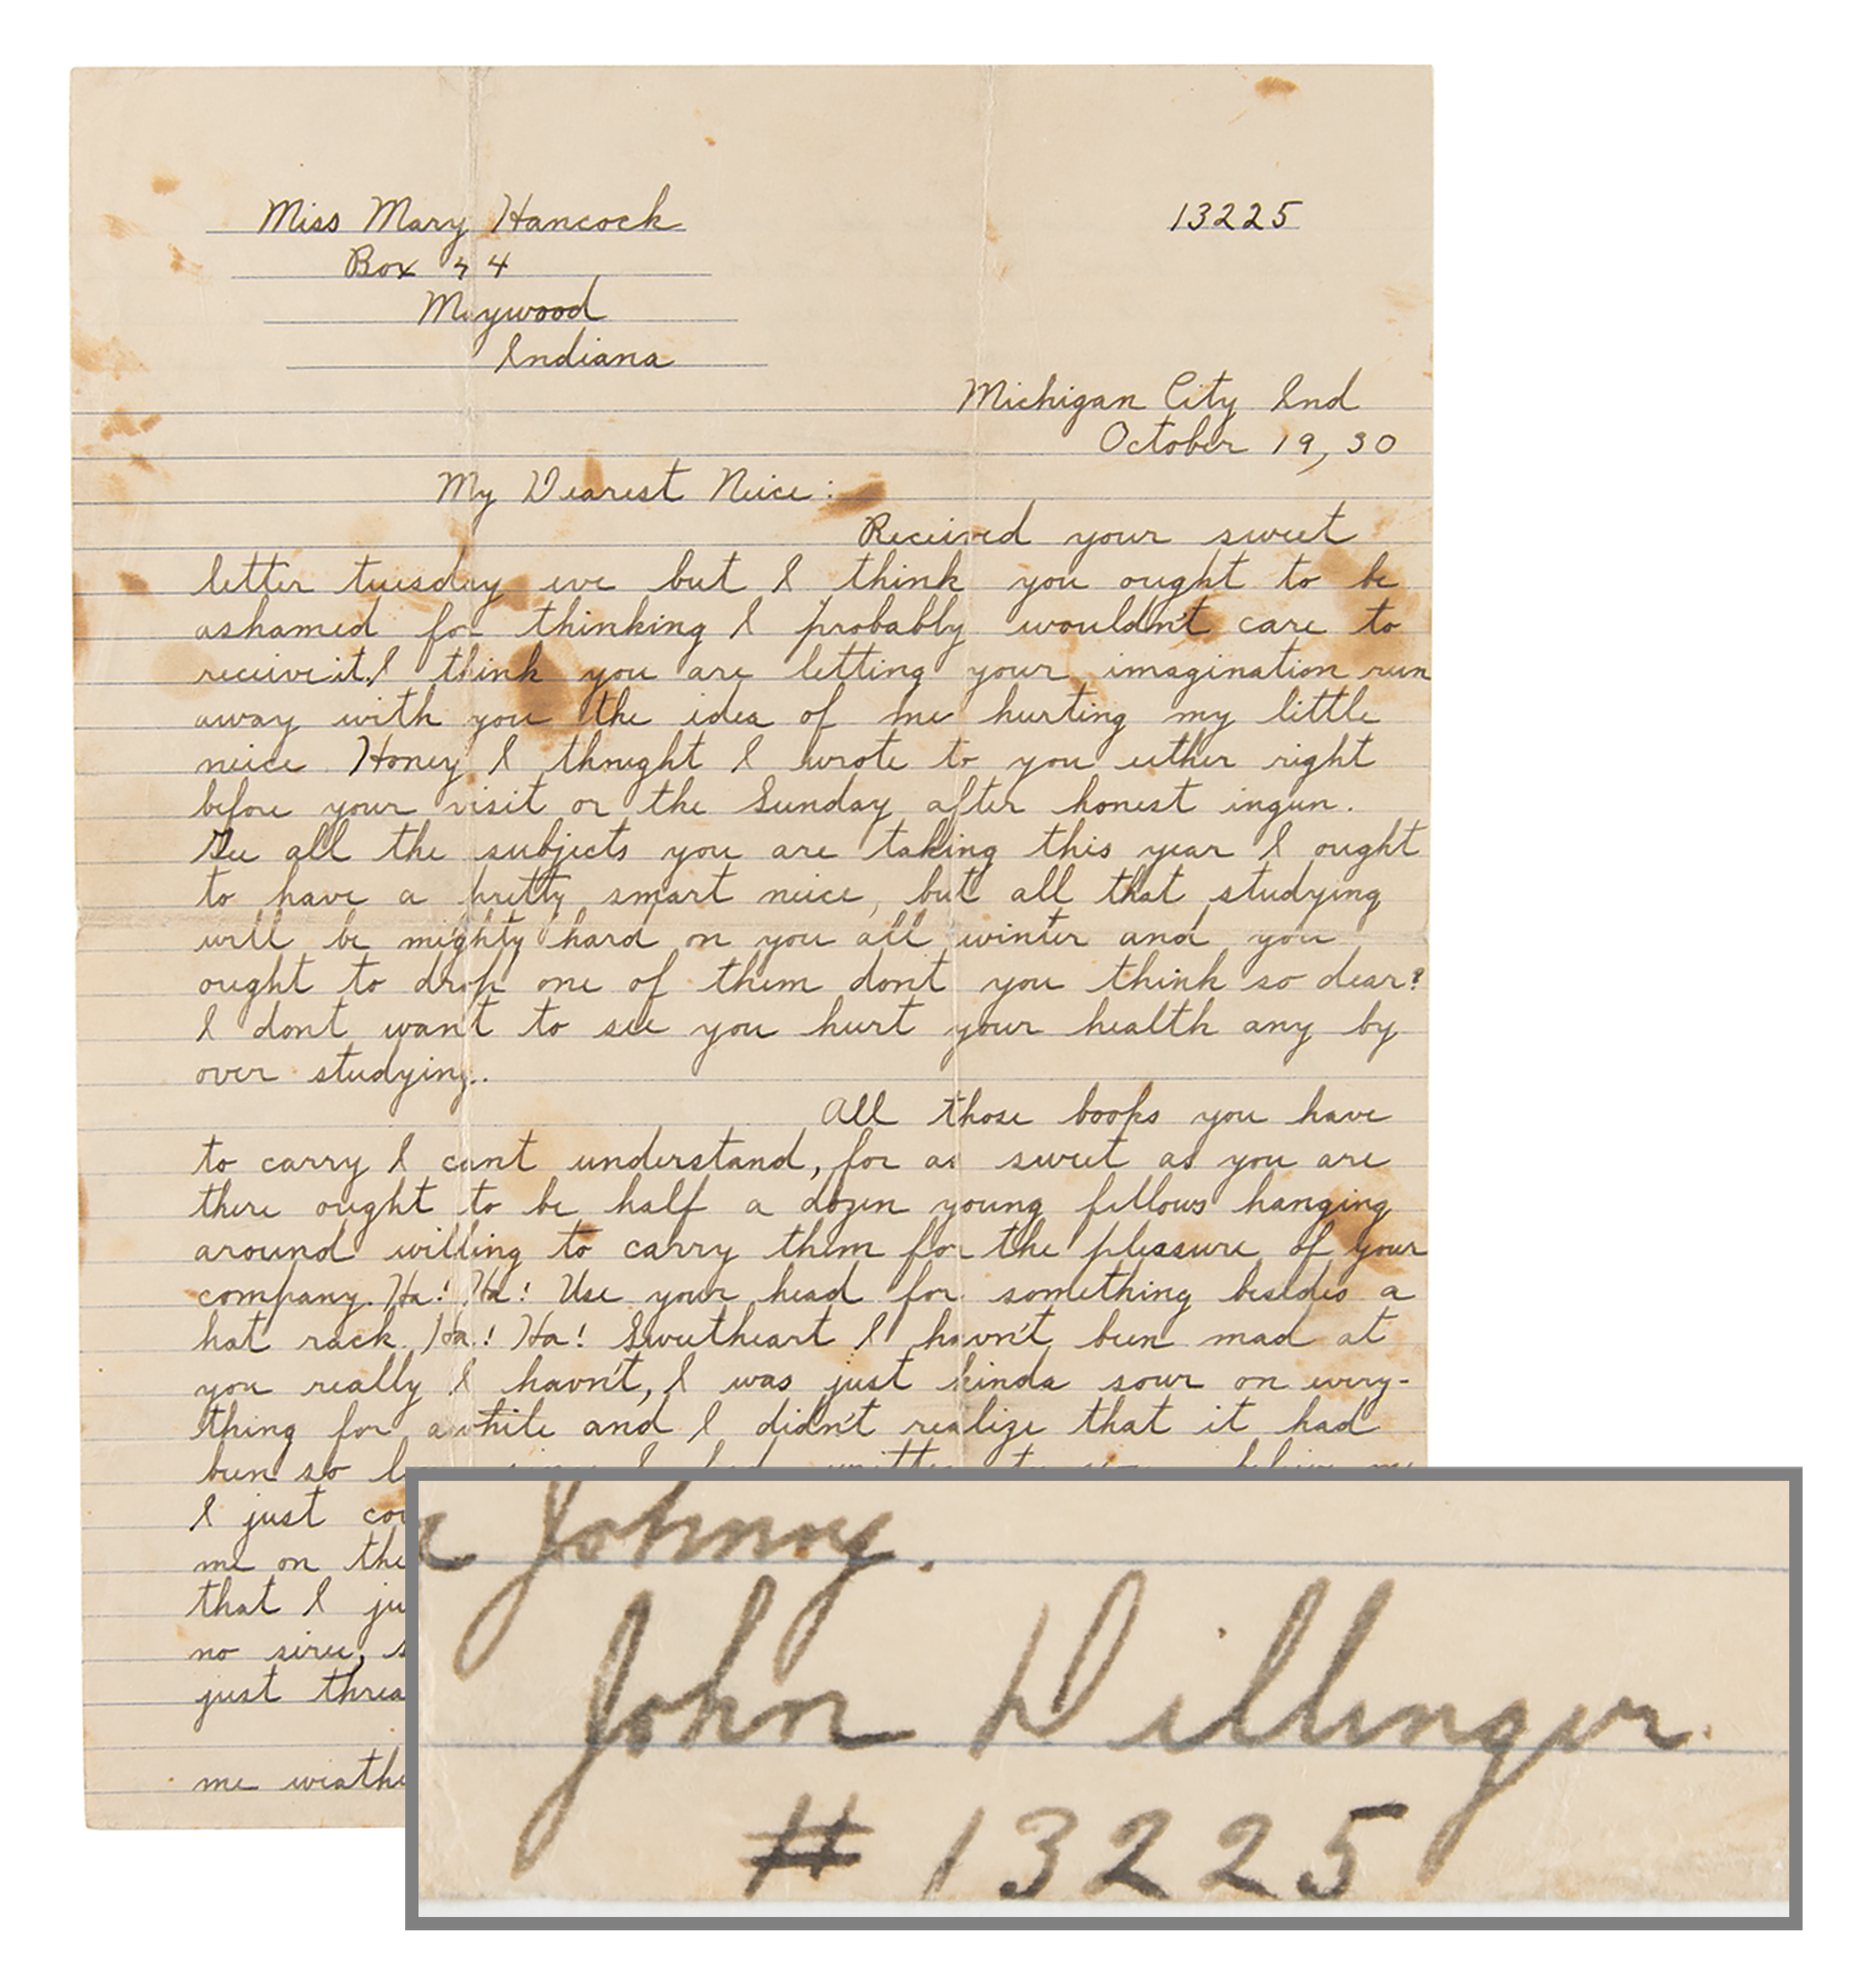 Miss Mary Hancock
13225
Box 44
Maywood
Indiana
Michigan City Ind
October 19, 30
My Dearest Neice:
Received your sweet
letter tuesday eve but I think you ought to be
ashamed for thinking I probably wouldn't care to
receive it. I think you are letting your imagination run
away with you the idea of me hurting my little
neice Honey I thought I wrote to you either right
before your visit or the Sunday after honest ingun.
Gee all the subjects you are taking this year I ought
to have a pretty smart neice, but all that studying
will be mighty hard on you all winter and you
ought to drop one of them dont you think so dear?
I dont want to see you hurt your health any by
over studying.
All those books you have
to carry I cant understand, for as sweet as you are
there ought to be half a dozen young fellows hanging
around willing to carry them for the pleasure of your
company. Ha! Ha! Use your head for something besides a
hat rack Ha! Ha! Sweetheart I havn't been mad at
you really I havn't, I was just kinda sour on every-
thing for awhile and I didn't realize that it had
been so
I just
me on the
that I
no siree,
just
me
Johnny.
John Dillinger.
# 13225